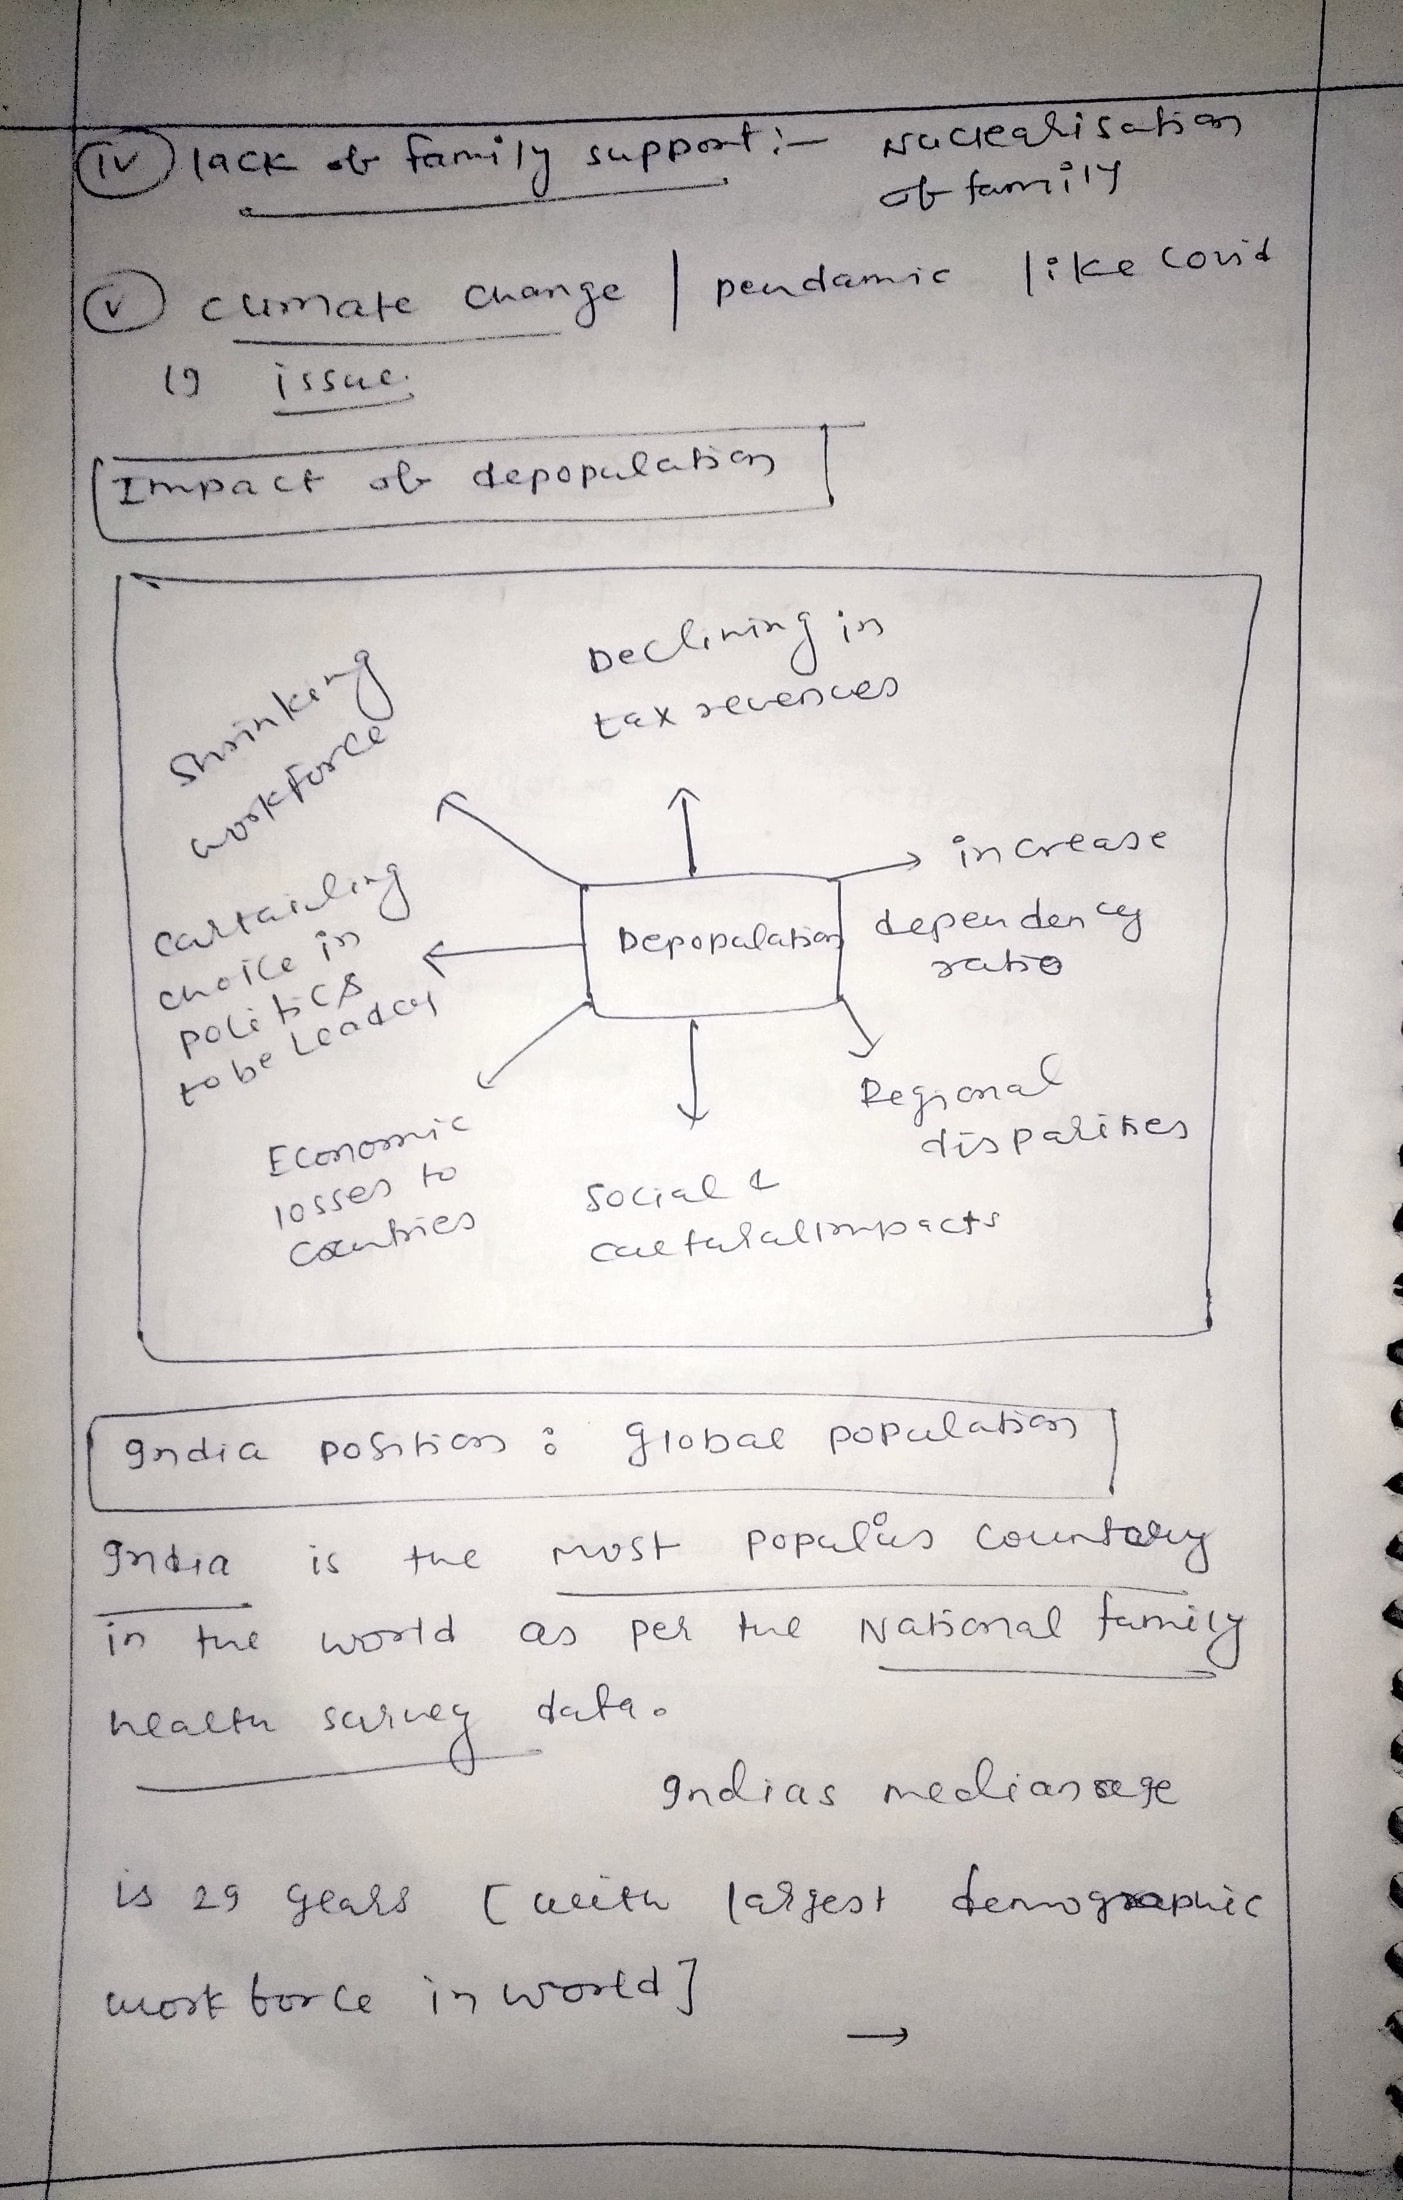 (iv) lack of family support :- Nuclearisation
of family
(v) climate change | pendamic like covid
is issue.
Impact of depopulation
Declining in
tax revences
Shrinking
workforce
increase
dependency
ratio
Depopulation
Curtailing
choice in
politics
to be Leader
Regional
disparities
Economic
losses to
Countries
Social &
cultural impacts
India position : global population
India is the most populus country
in the world as per the National family
health survey data.
Indias median age
is 29 years [ with largest demographic
work force in world ]
→